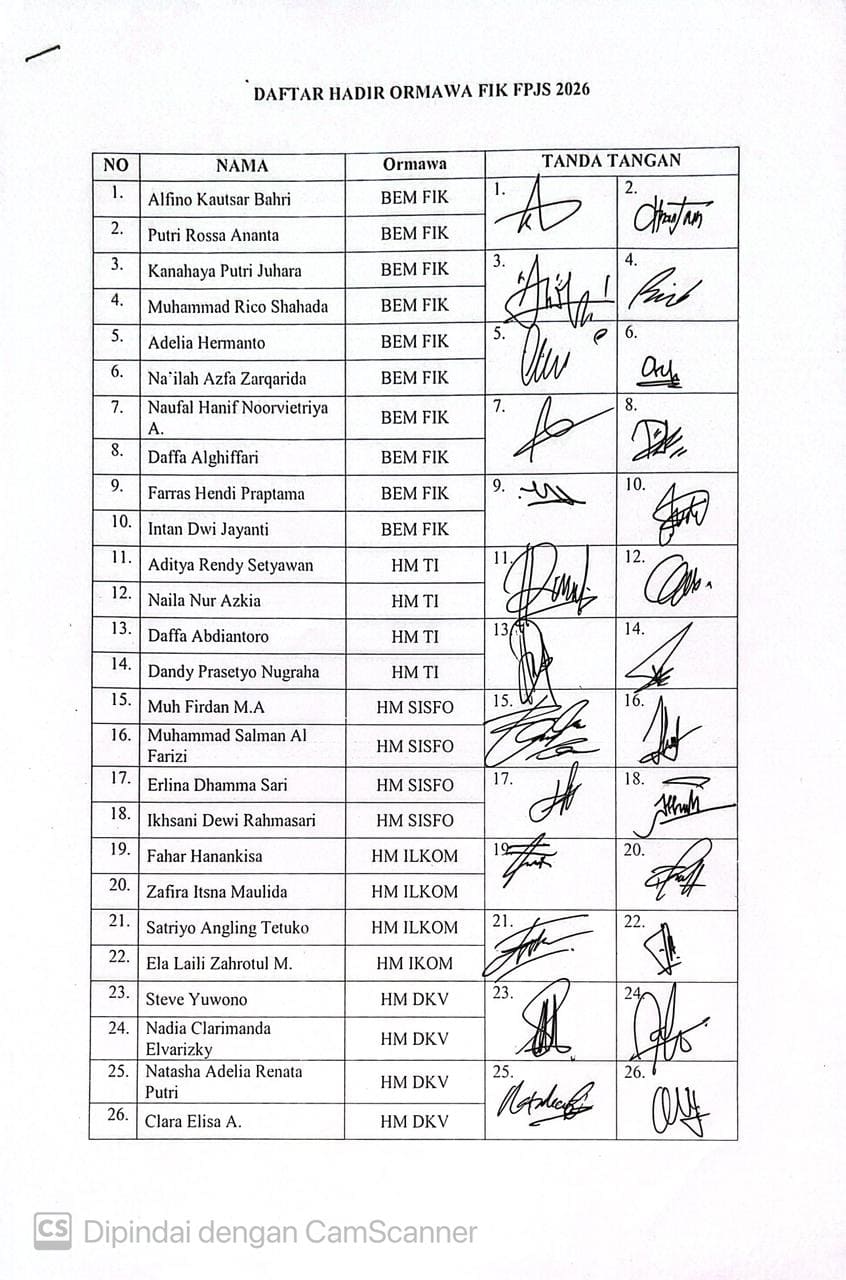 DAFTAR HADIR ORMAWA FIK FPJS 2026
NO NAMA Ormawa TANDA TANGAN
1. Alfino Kautsar Bahri BEM FIK 1. 2.
2. Putri Rossa Ananta BEM FIK
3. Kanahaya Putri Juhara BEM FIK 3. 4.
4. Muhammad Rico Shahada BEM FIK
5. Adelia Hermanto BEM FIK 5. 6.
6. Na'ilah Azfa Zarqarida BEM FIK
7. Naufal Hanif Noorvietriya
A. BEM FIK 7. 8.
8. Daffa Alghiffari BEM FIK
9. Farras Hendi Praptama BEM FIK 9. 10.
10. Intan Dwi Jayanti BEM FIK
11. Aditya Rendy Setyawan HM TI 11. 12.
12. Naila Nur Azkia HM TI
13. Daffa Abdiantoro HM TI 13. 14.
14. Dandy Prasetyo Nugraha HM TI
15. Muh Firdan M.A HM SISFO 15. 16.
16. Muhammad Salman Al
Farizi HM SISFO
17. Erlina Dhamma Sari HM SISFO 17. 18.
18. Ikhsani Dewi Rahmasari HM SISFO
19. Fahar Hanankisa HM ILKOM 19. 20.
20. Zafira Itsna Maulida HM ILKOM
21. Satriyo Angling Tetuko HM ILKOM 21. 22.
22. Ela Laili Zahrotul M. HM IKOM
23. Steve Yuwono HM DKV 23. 24.
24. Nadia Clarimanda
Elvarizky HM DKV
25. Natasha Adelia Renata
Putri HM DKV 25. 26.
26. Clara Elisa A. HM DKV
CS Dipindai dengan CamScanner